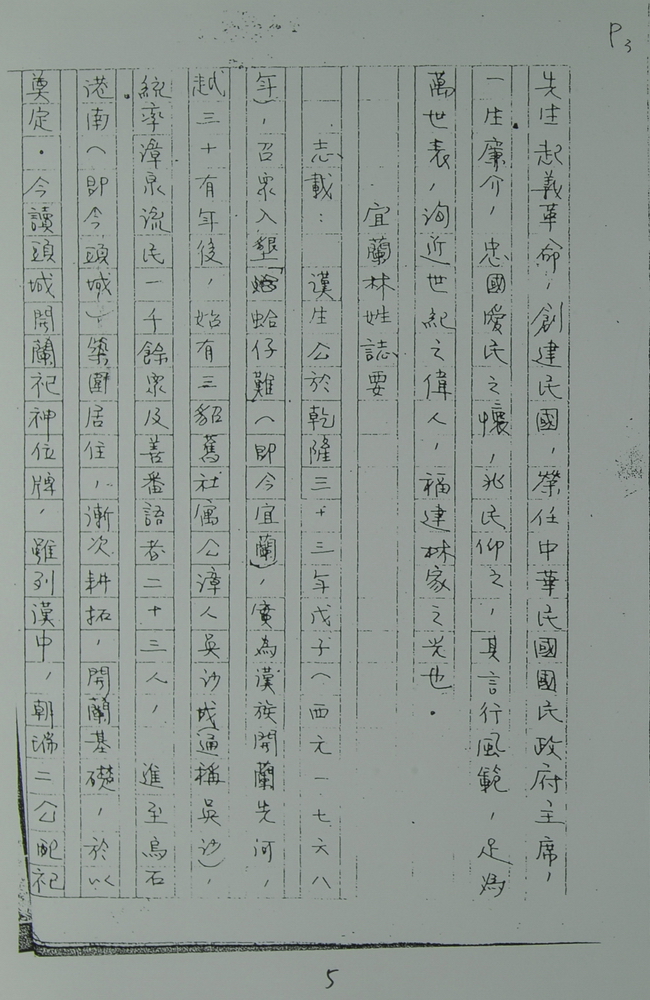 P3
先生起義革命，創建民國，榮任中華民國國民政府主席，
一生廉介，忠國愛民之懷，兆民仰之，其言行風範，足為
萬世表，洵近世紀之偉人，福建林家之光也．
宜蘭林姓誌要
志載：漢生公於乾隆三十三年戊子（西元一七六八
年），召眾入墾「蛤仔難（即今宜蘭），實為漢族開蘭先河，
越三十有年後，始有三貂舊社寓公漳人吳沙成（通稱吳沙），
統率漳泉流民一千餘眾及善番語者二十三人，進至烏石
港南（即今頭城），築圍居住，漸次耕拓，開蘭基礎，於以
奠定．今讀頭城開蘭祀神位牌，雖列漢中，朝瑞二公配祀
5